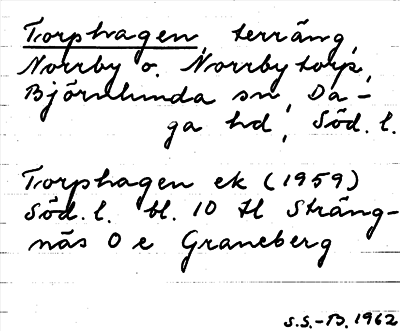 Torphagen, terräng,
Norrby o. Norrbytorp,
Björnlunda sn, Da-
ga hd, Söd. l.
Torphagen ek (1959)
Söd. l. bl. 10 H Sträng-
näs O e Graneberg
S.S.-B. 1962